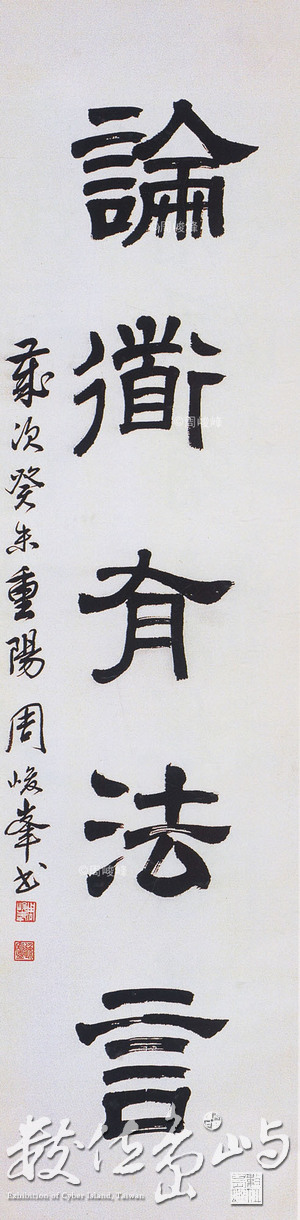 論衜有法言
歲次癸未重陽周峻峯書
©周峻峰
©周峻峰
©周峻峰
數位島嶼
Exhibition of Cyber Island, Taiwan